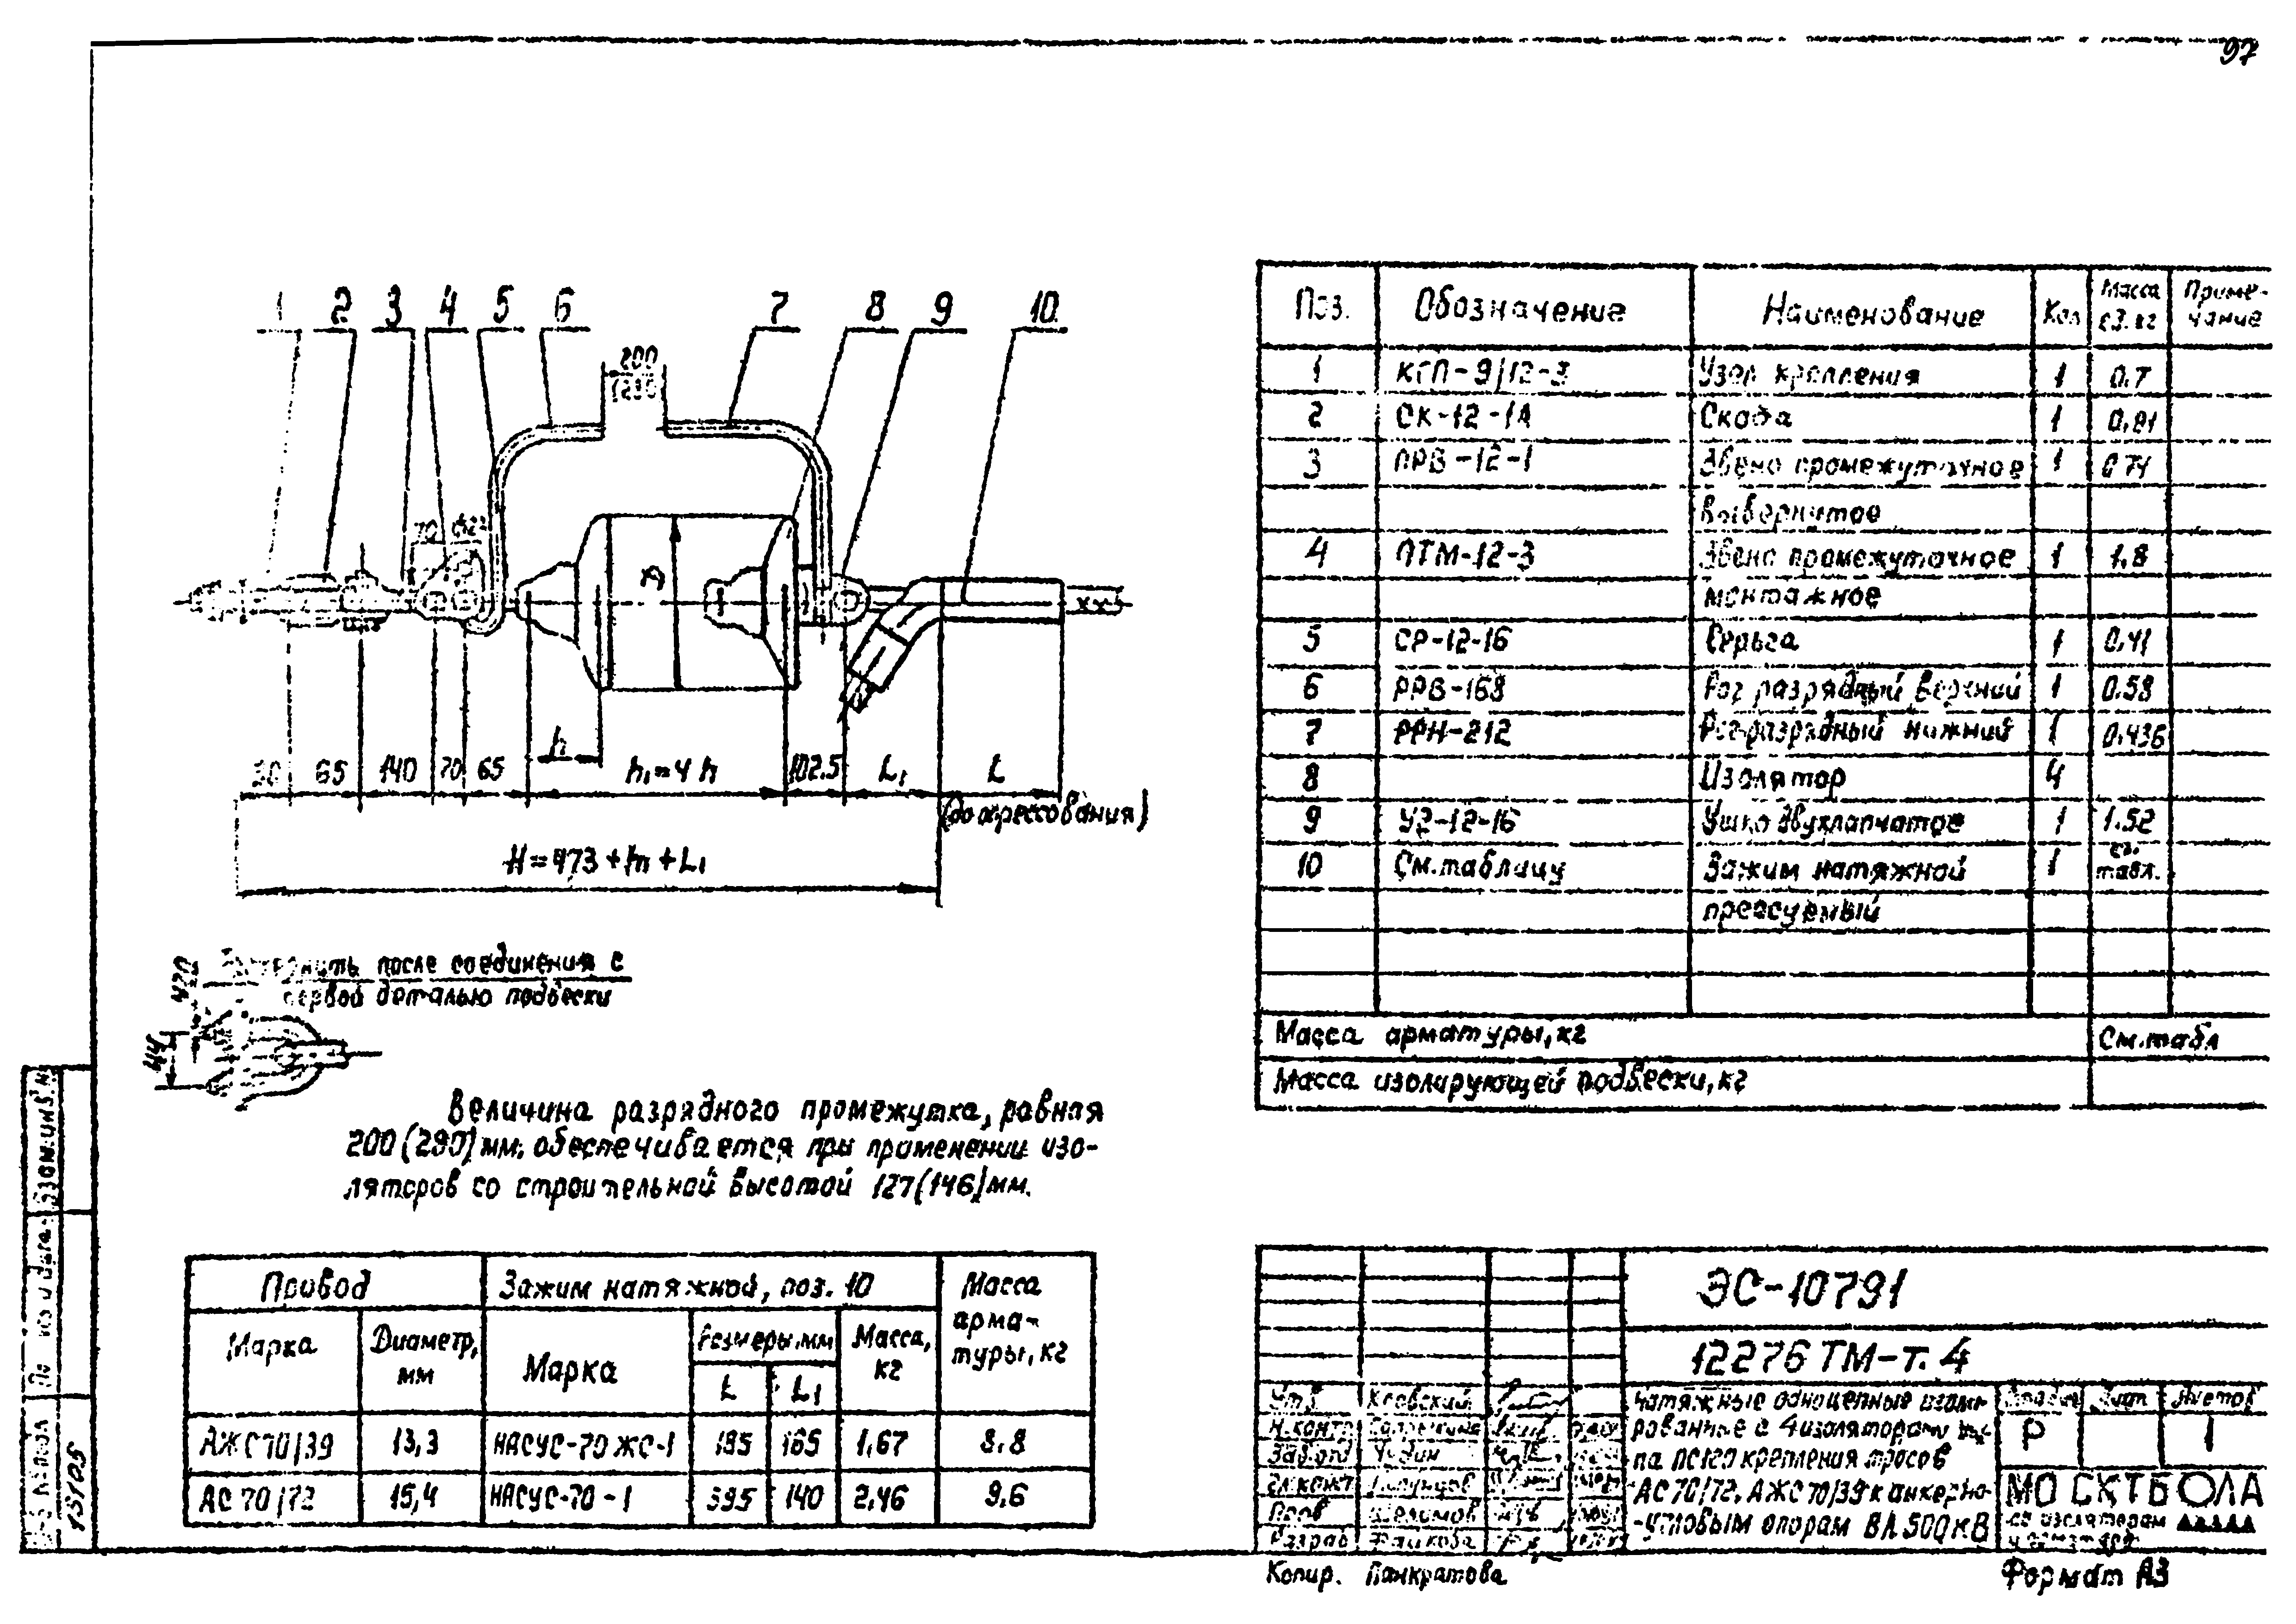 97
1 2 3 4 5 6 7 8 9 10
200
70
h
65 140 70 65 h₁=4h 102.5 L₁ L
(до опрессования)
H=473+h₁+L₁
после соединения с
первой деталью подвески
44
Величина разрядного промежутка, равная
200(290)мм, обеспечивается при применении изо-
ляторов со строительной высотой 127(146)мм.
Провод Зажим натяжной, поз. 10 Масса арма- туры, кг
Марка Диаметр, мм Марка Размеры, мм Масса, кг
L L₁
АЖС70/39 13,3 НАСУС-70ЖС-1 195 165 1,67 8.8
АС 70/72 15,4 НАСУС-70-1 395 140 2,46 9.6
Поз. Обозначение Наименование Кол Масса ед. кг Приме- чание
1 КГП-9/12-3 Узел крепления 1 0.7
2 СК-12-1А Скоба 1 0,91
3 ПРВ-12-1 Звено промежуточное 1 0.74
вывернутое
4 ПТМ-12-3 Звено промежуточное 1 1,8
монтажное
5 СР-12-16 Серьга 1 0,41
6 РРВ-168 Рог разрядный верхний 1 0.58
7 РРН-212 Рог разрядный нижний 1 0.436
8 Изолятор 4
9 У2-12-16 Ушко двухлапчатое 1 1.52
10 См.таблицу Зажим натяжной 1 см. табл.
прессуемый
Масса арматуры, кг См.табл
Масса изолирующей подвески, кг
ЭС-10791
12276 ТМ-т. 4
Утв.
Н.контр
Зав.отд
Гл.конст
Пров
Разраб
Натяжные одноцепные изоли-
рованные с 4 изоляторами ти-
па ПС120 крепления тросов
АС 70/72, АЖС 70/39 к анкерно-
-угловым опорам ВЛ 500кВ
Лист Листов
Р 1
МО СКТБ ОЛА
по изоляторам
Взам.инв.№
13105
Копир. Панкратова
Формат А3